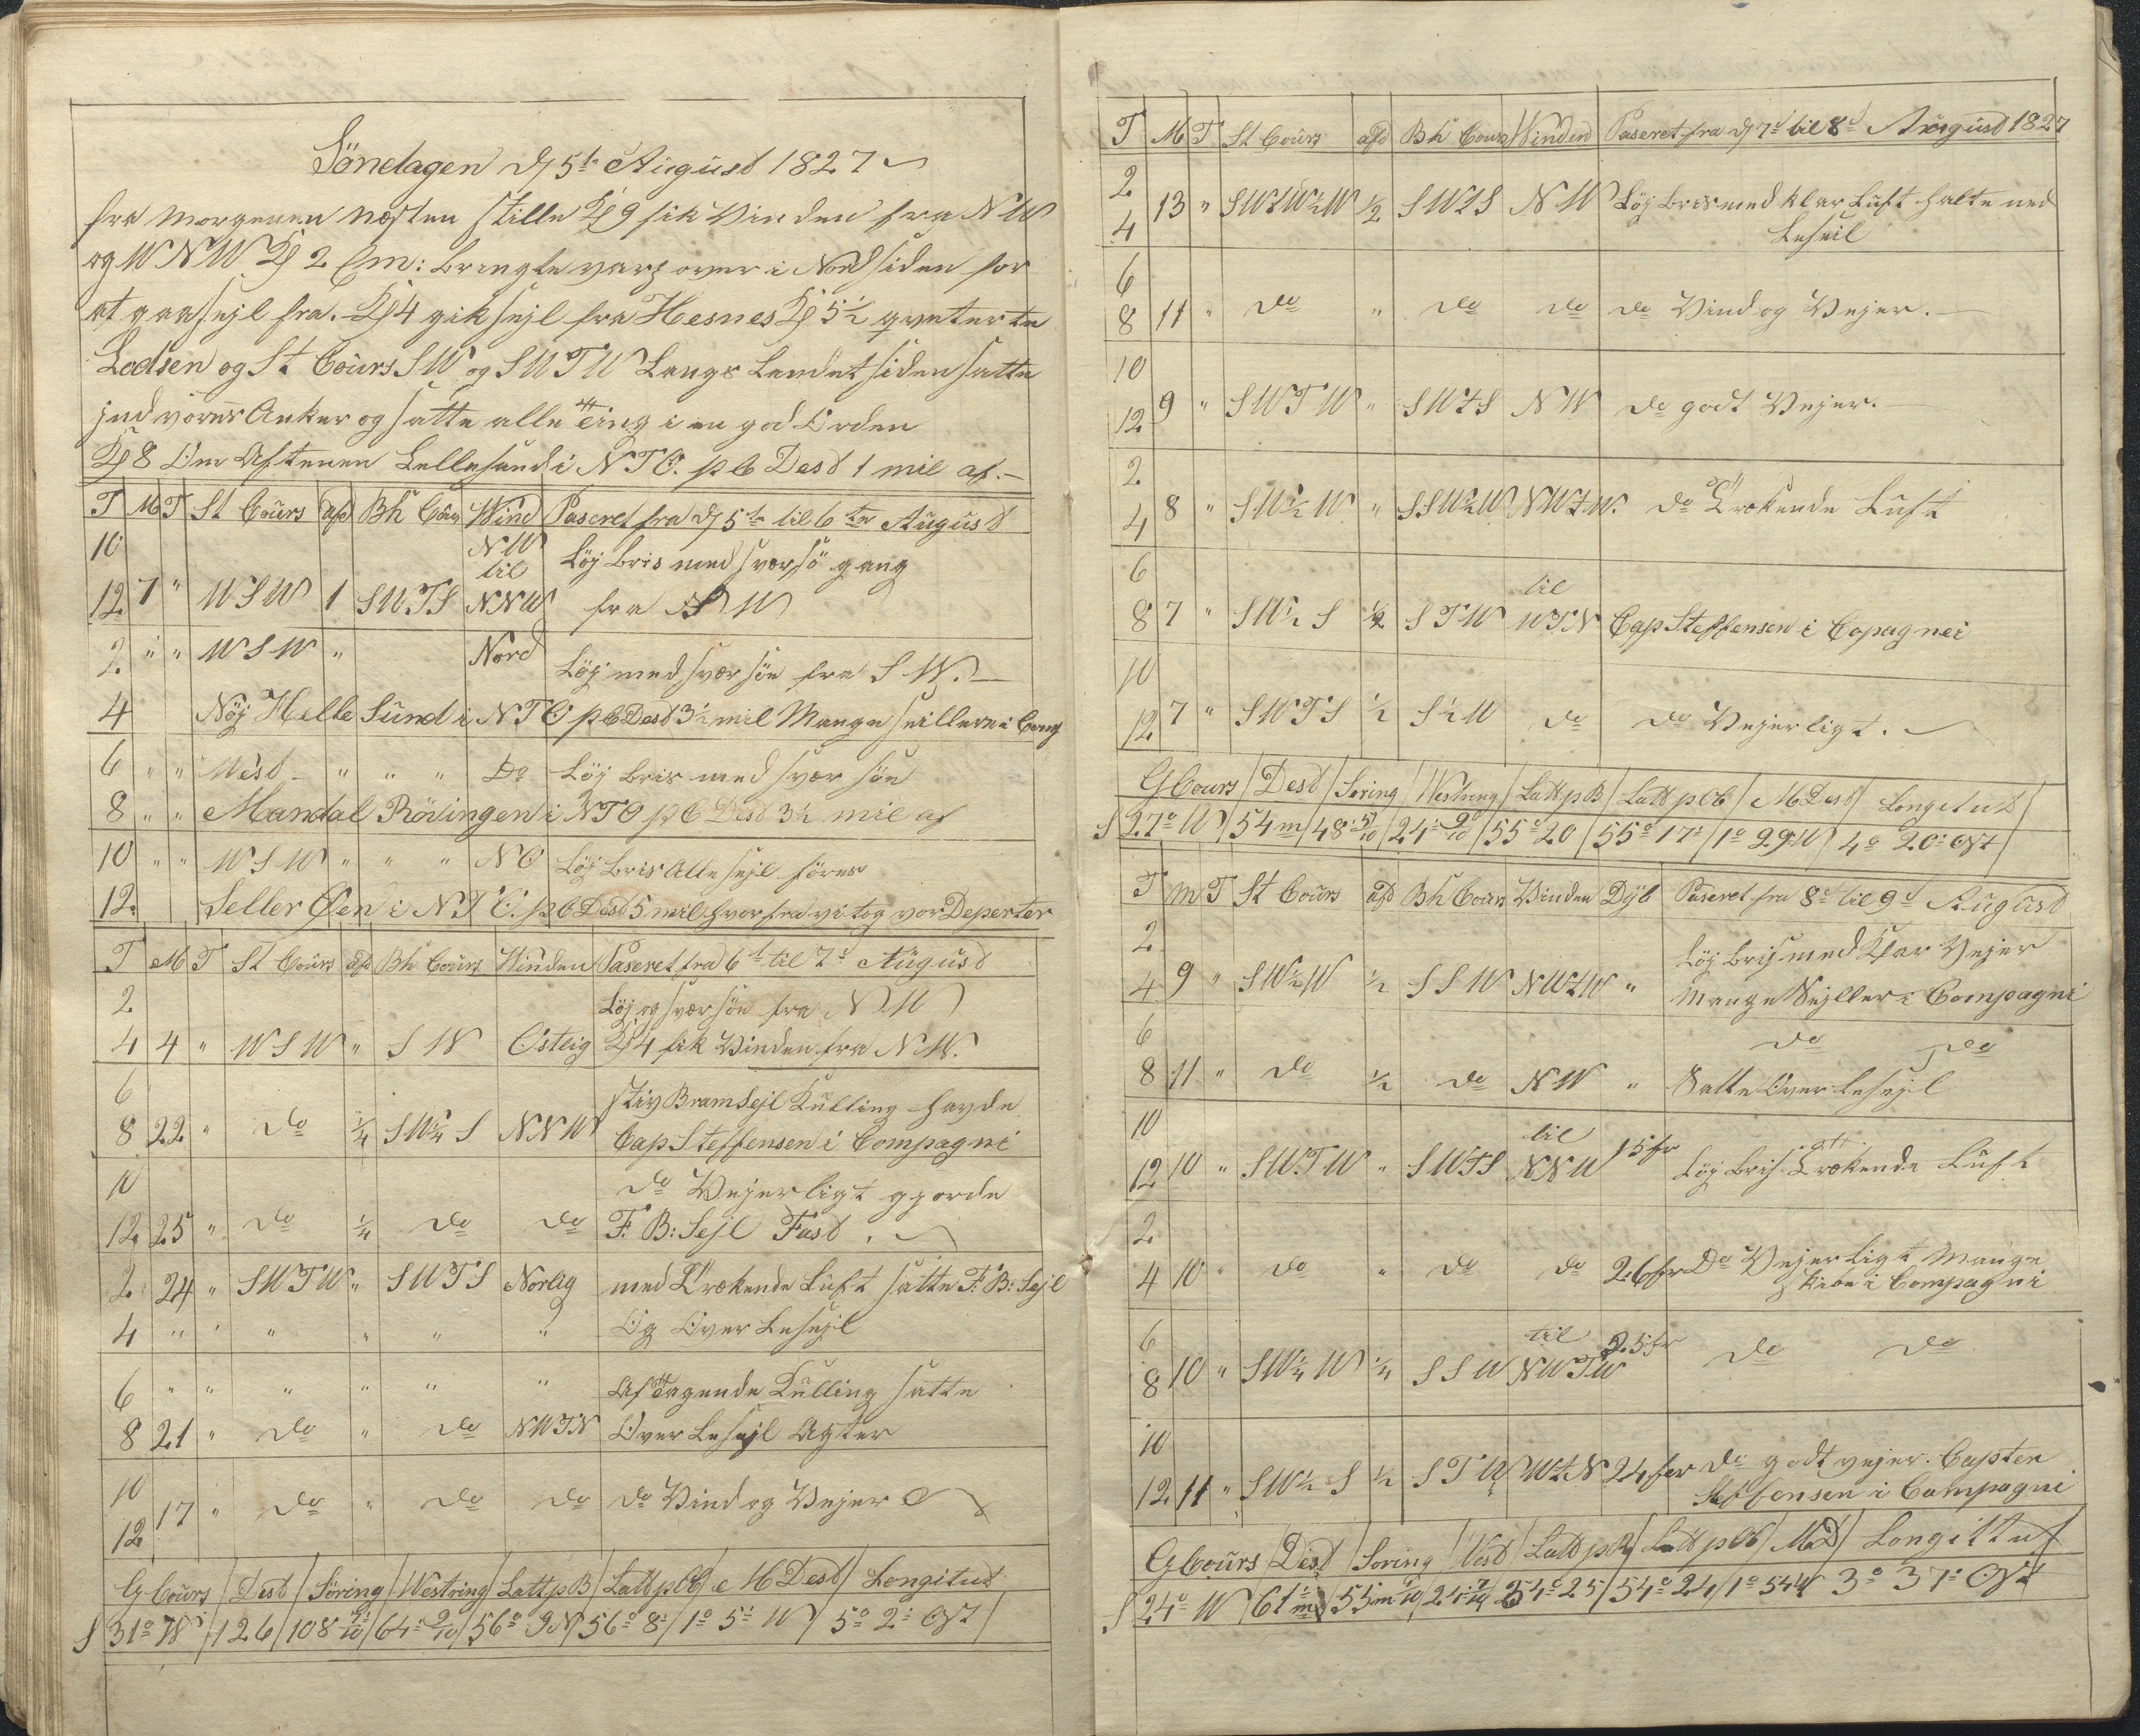 Söndagen d 5te August 1827
fra Morgenen nesten stille Kl 9 fik Vinden fra NW
og WNW Kl 2 Em: bragte varp over i Nordsiden for
at gaa sejl fra. Kl 4 gik sejl fra Hesnes Kl 5½ qviterte
Lodsen og St Cours SW og SWTW Langs Landet siden satte
ind vores Anker og satte alle Ting i en god Orden
Kl 8 Om Aftenen Lellesund i NTO. p C Dest 1 mil af.
T M T St Cours afd Bh Cours Wind Paseret fra d 5te til 6te August
10 NW til Löj bris med svær sö gang
12 7 " WSW 1 SWTS NNW fra SW
2 " " WSW " Nord Löj med svær söe fra SW.
4 Nöj Helle Sund i NTO p C Dest 3½ mil Mange seillere i
6 " " West " " " Do Löj bris med svær söe
8 " " Mandal Röisingen i NTO p C Dest 3½ mil af
10 " " WSW " " " NO Löj bris Alle sejl föres
12. Seller Øen i NTO. p C Dest 5 mil hvorfra vi tog vor Deperter
T M T St Cours afd Bh Cours Winden Paseret fra 6te til 7d August
2 Löj og svær söe fra NW
4 4 " WSW " SW Ostlig Kl 4 fik Vinden fra NW.
6 stiv Bramsejl Kulling havde
8 22 " do ¼ SW¼S NNW Cap Steffensen i Compagni
10 do Vejerligt gjorde
12 25 " do ¼ do do F: B: Sejl Fast.
2 24 " SWTW " SWTS Norlig med Trækende Luft satte F: B: Sejl
4 " " " " " " Og Over Lesejl
6 " " " " " " Aftagende Kulling satte
8 21 " do " do NWTN Over Lesejl Agter
10
12 17 " do " do do do Vind og Vejer
G Cours Dest Söring Westring Latt p B Latt p Ob M Dest Longitud
S 31° W 126 108 64 9/10 56° 9 N 56° 8 1° 5 W 5° 2 Ost
T M T St Cours afd Bh Cours Winden Paseret fra d 7d til 8d August 1827
2
4 13 " SWTW½W ½ SWTS NW Löj bris med klar Luft halte ned
Leseil
6
8 11 " do " do do do Vind og Vejer.
10
12 9 " SWTW " SWTS NW do godt Vejer.
2
4 8 " SW½W " SSW½W NWTW. do Trækende Luft
6 til
8 7 " SW½S ½ STW WTN Cap Steffensen i Copagnei
10
12 7 " SWTS ½ S½W do do Vejerligt.
G Cours Dest Söring Westring Latt p B Latt p Ob M Dest Longitud
S 27° W 54 m 48 5/10 24 9/10 55° 20 55° 17 1° 29 W 4° 20 Ost
T M T St Cours afd Bh Cours Vinden Dyb Paseret fra 8d til 9d August
2 Löj bris med Klar Vejer
4 9 " SW½W ½ SSW NWTW " Mange Sejller i Compagni
6 do do
8 11 " do ½ do NW " Satte Over Lesejl
10 til
12 10 " SWTW " SWTS NNW 15 fv Löj bris Trækende Luft
2
4 10 " do " do do 26 fv Do Vejerligt Mange
Skibe i Compagni
6 til 25 fv
8 10 " SW¼W ¼ SSW NWTW do do
10
12 11 " SW½S ½ STW WTN 24 fav do godt vejer. Capten
Steffensen i Compagni
G Cours Dest Soring Vest Latt p B Latt p Ob MD Longittut
S 24° W 61 m 55 m 24 7/10 54° 25 54° 24 1° 54 W 3° 37 Ost